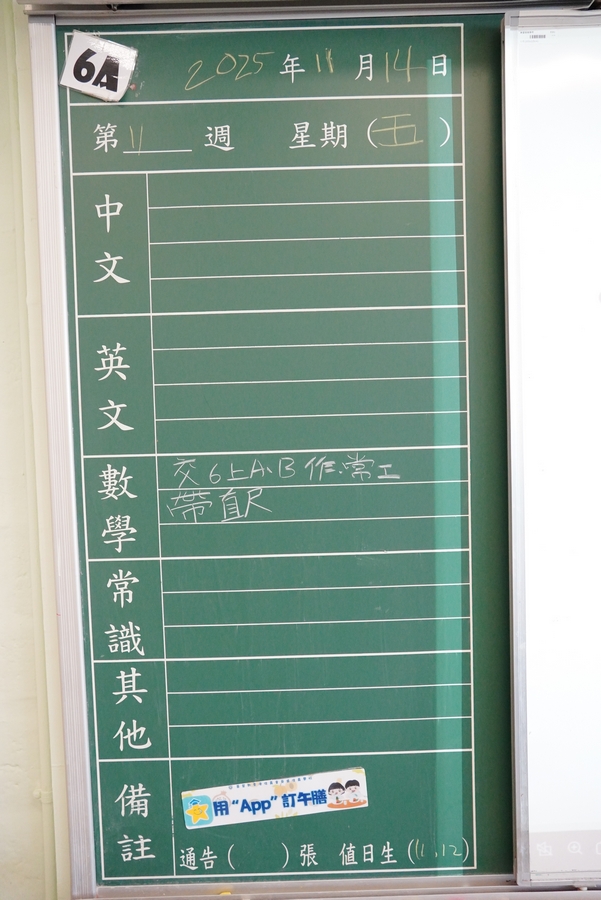 6A
2025年11月14日
第11週 星期(五)
中文
英文
數學
交6上A、B 作、常工
帶直尺
常識
其他
備註
用“App”訂午膳
通告( )張 值日生(11,12)